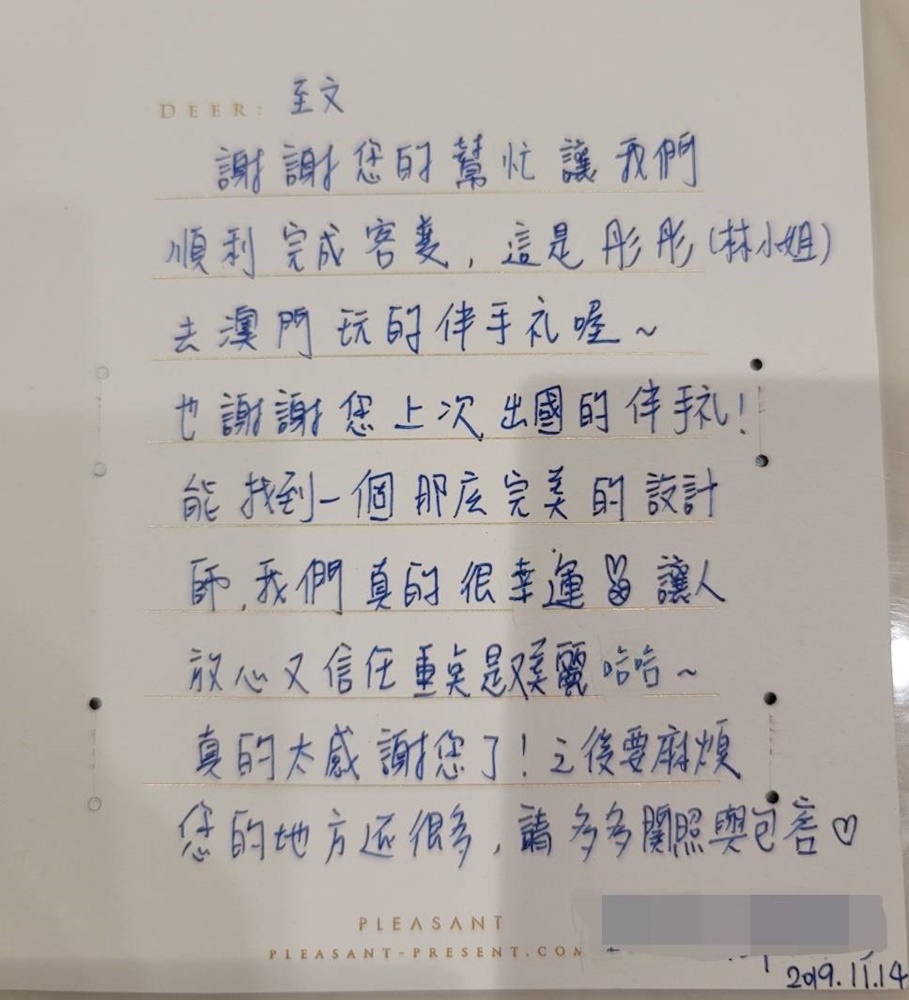 DEER: 至文
謝謝您的幫忙讓我們
順利完成客變，這是彤彤(林小姐)
去澳門玩的伴手礼喔~
也謝謝您上次出國的伴手礼！
能找到一個那庅完美的設計
師，我們真的很幸運 讓人
放心又信任重點是又美麗哈哈~
真的太感謝您了！之後要麻煩
您的地方还很多，請多多關照與包容♡
PLEASANT
PLEASANT-PRESENT.COM
2019.11.14